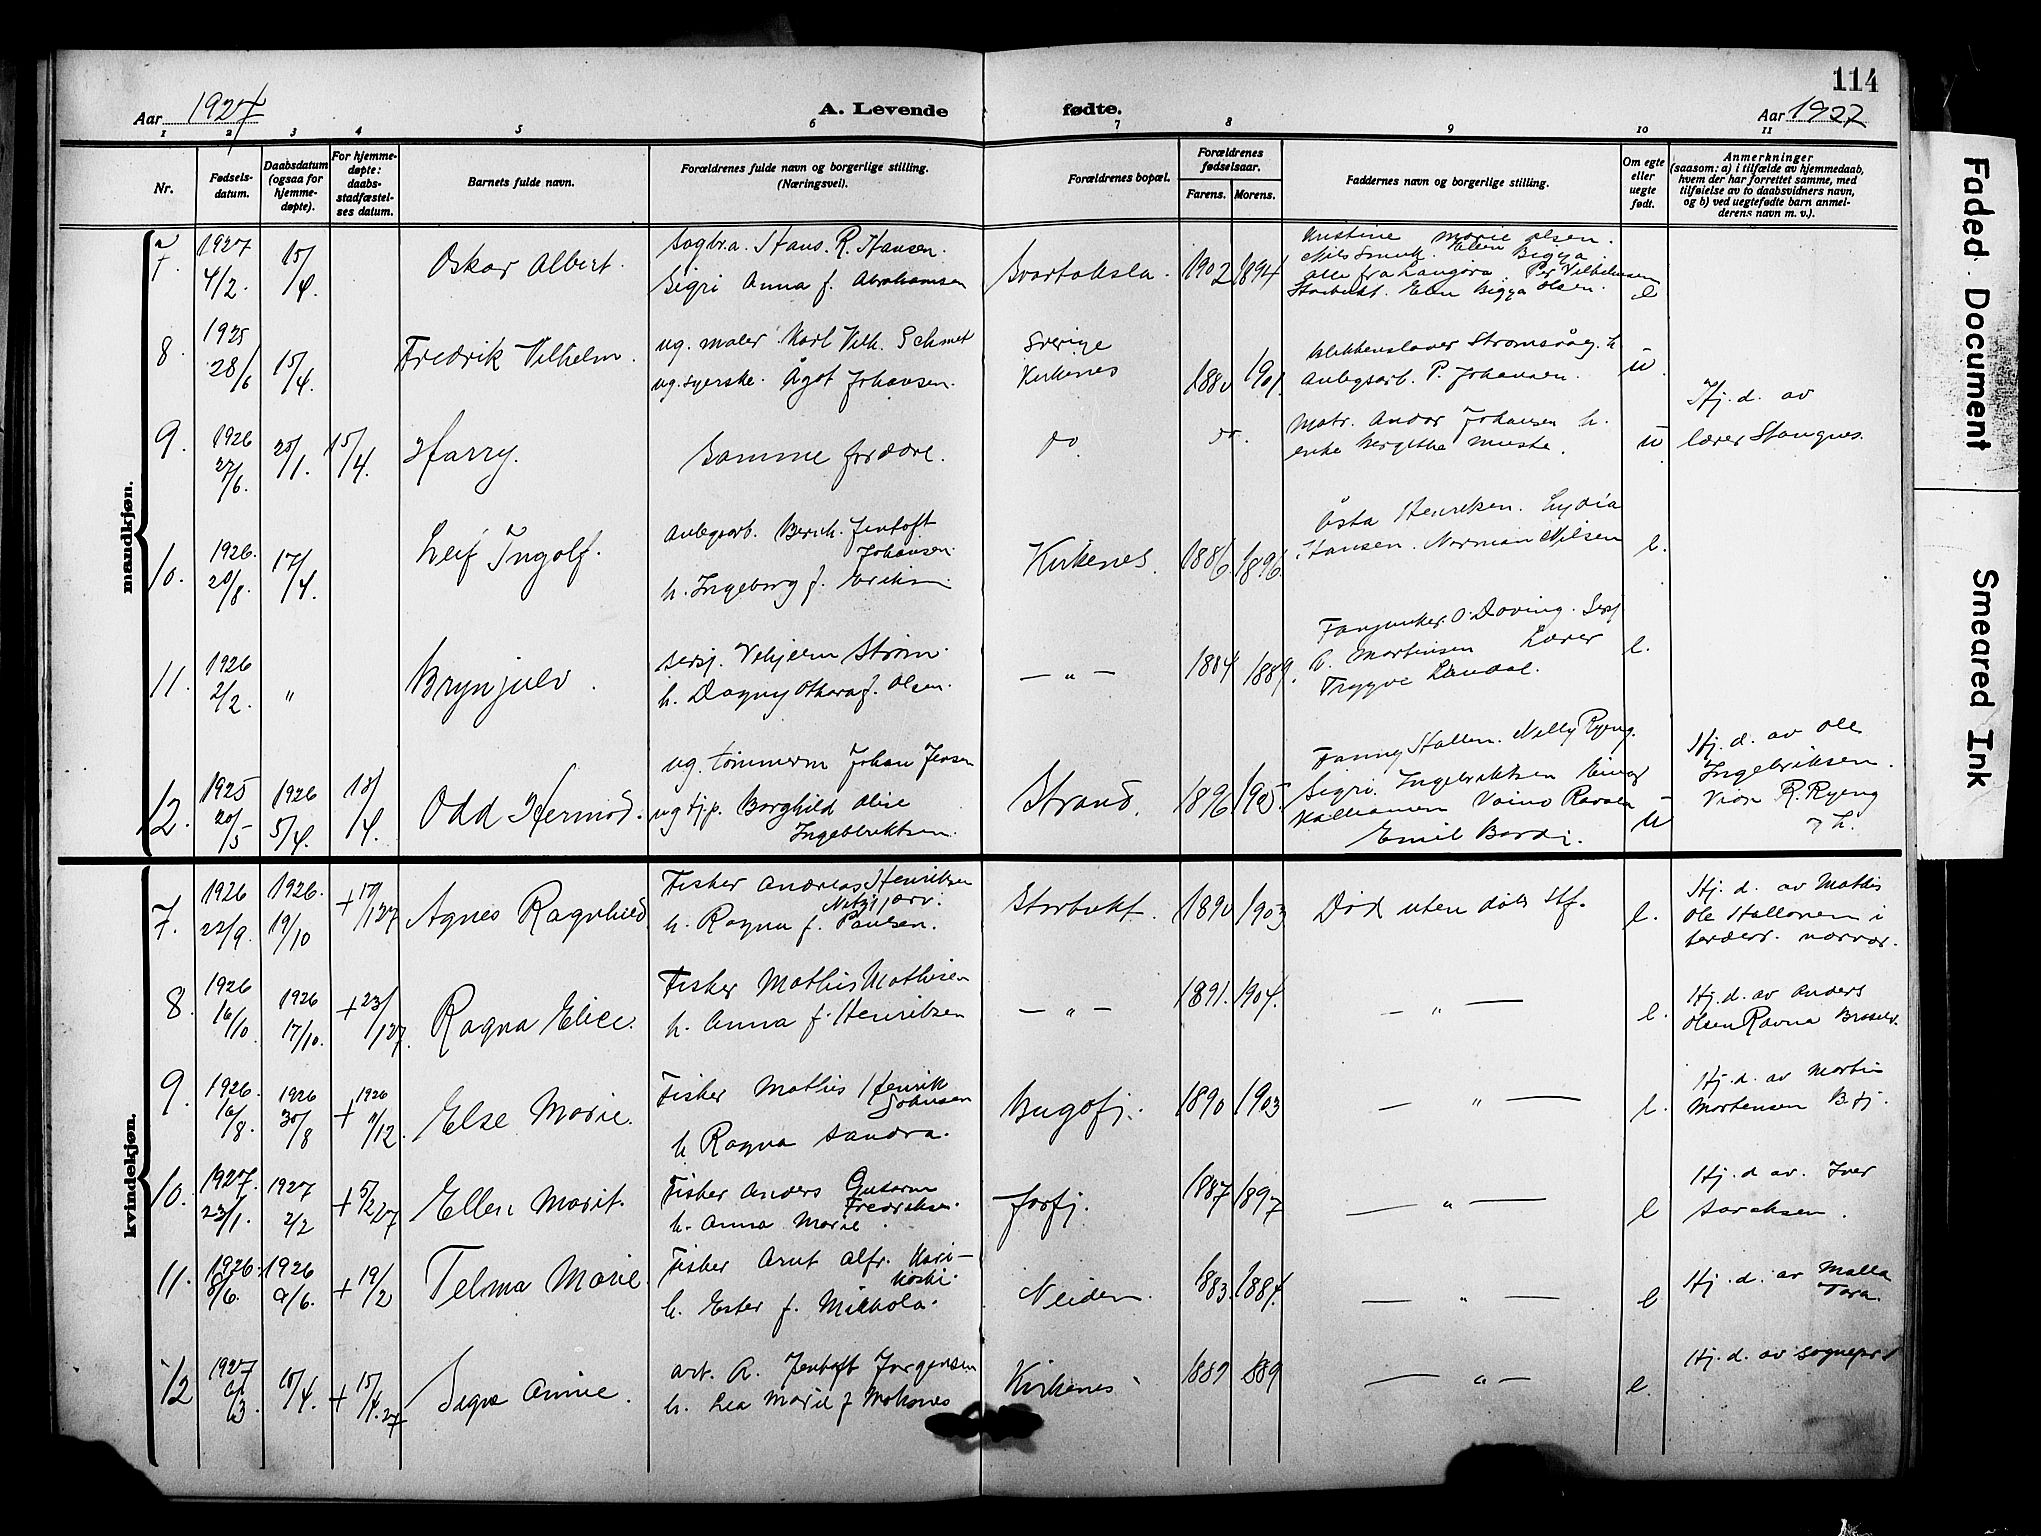 114
Aar 1927
A. Levende fødte.
Aar 1927
1 2 3 4 5 6 7 8 9 10 11
Nr.
Fødsels-
datum.
Daabsdatum
(ogsaa for
hjemme-
døpte).
For hjemme-
døpte:
daabs-
stadfæstel-
ses datum.
Barnets fulde navn.
Forældrenes fulde navn og borgerlige stilling.
(Næringsvei).
Forældrenes bopæl.
Forældrenes
fødselsaar.
Farens. Morens.
Faddernes navn og borgerlige stilling.
Om egte
eller
uegte
født.
Anmerkninger
(saasom: a) i tilfælde av hjemmedaab,
hvem der har forrettet samme, med
tilføielse av to daabsvidners navn,
og b) ved uegtefødte barn anmel-
derens navn m. v.).
mandkjøn.
7. 1927 4/2. 15/4. Oskar Albert.
Hans. R. Hansen.
Sigri Anna f. Abrahamsen
Svartaksla. 1902 1894
Kristine Marie Olsen.
Nils Ellen Bigga
alle fra Langøra. Per Vilhelmsen
Storbukt. Ellen Bigga Olsen. e
8. 1925 28/6 15/4. Fredrik Vilhelm.
ug. maler Karl Vilh. Schmet
ug. syerske. Ågot Johansen.
Sverige
Kirkenes
1880 1901.
Strømsvåg. h
Anlegsarb. P. Johansen. u.
9. 1926 27/6. 20/1. 15/4. Harry.
Samme foreldre.
do do.
Matr. Andor Johansen h.
enke u
Hj. d. av
lærer Stangnes.
10. 1926. 20/8. 17/4. Leif Ingolf.
Anlegsarb. Jentoft
Johansen.
h. Ingeborg f. Eriksen
Kirkenes. 1886 1896.
Åsta Henriksen. Lydia
Hansen. Norman Nilsen e.
11. 1926 2/2. " Brynjulv.
Sersj. Strøm.
h. Dagny Othora f. Olsen.
— " — 1884 1889.
Fanejunker O. Døving. Sersj
Martinsen Lærer
Trygve e.
12. 1925 20/5 1926 5/4. 18/4. Odd Hermod.
ug. tømmerm Johan Jensen
ug tjp. Borghild Olise
Ingebriktsen.
Strand. 1896 1905.
Fanny Hallen. Nelly Ryeng.
Sigri. Ingebriktsen Einar
Vaino
Emil u
Hj. d. av Ole
Ingebriksen.
R. Ryeng
kvindekjøn.
7. 1926 22/9. 1926. 19/10 + 17/1 27 Agnes Ragnhild
Fisker Andreas Henriksen
h. Ragna f. Paulsen.
Storbukt. 1890 1903 Død uten dåb stf. e.
Hj. d. av Mathis
Ole
8. 1926 16/10. 1926 17/10. + 23/1 27. Ragna Elice.
Fisker Mathis Mathisen
h. Anna f. Henriksen
— " — 1891. 1904. — " — e.
Hj. d. av Anders
Olsen Ravna
9. 1926. 16/8. 1926 30/8 + 1926 11/12. Else Marie.
Fisker Mathis Henrik
Johansen
h Ragna Sandra.
Bugøfj. 1890 1903 — " — e.
Hj. d. av Martin
Mortensen B.fj.
10. 1927. 23/1. 1927 2/2 + 5/2 27 Ellen Marit.
Fisker Anders
Fredriksen.
h. Anna Marie.
Jarfj. 1887 1897 — " — e
Hj. d av. Iver
11. 1926. 8/6. 1926 9/6. + 19/2 Telma Marie.
Fisker Arnt Alfr. Kari-
koski.
h. Ester f. Mikkola.
Neiden. 1883. 1884. — " — e
Hj. d. av Malla
12 1927 6/3. 10/4. + 15/4. 27 Signe Annie.
arb. A. Jentoft Jørgensen
h. Lea Marie f
Kirkenes 1887 1889 — " — e.
Hj. d. av sognepr
Faded Document
Smeared Ink